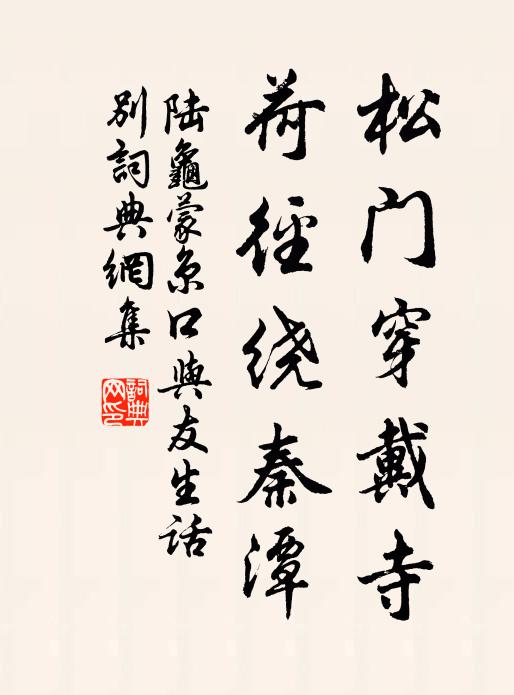 松门穿戴寺
荷径绕秦潭
陆龜蒙京口與友生话
别詞典網集
詞典
网印